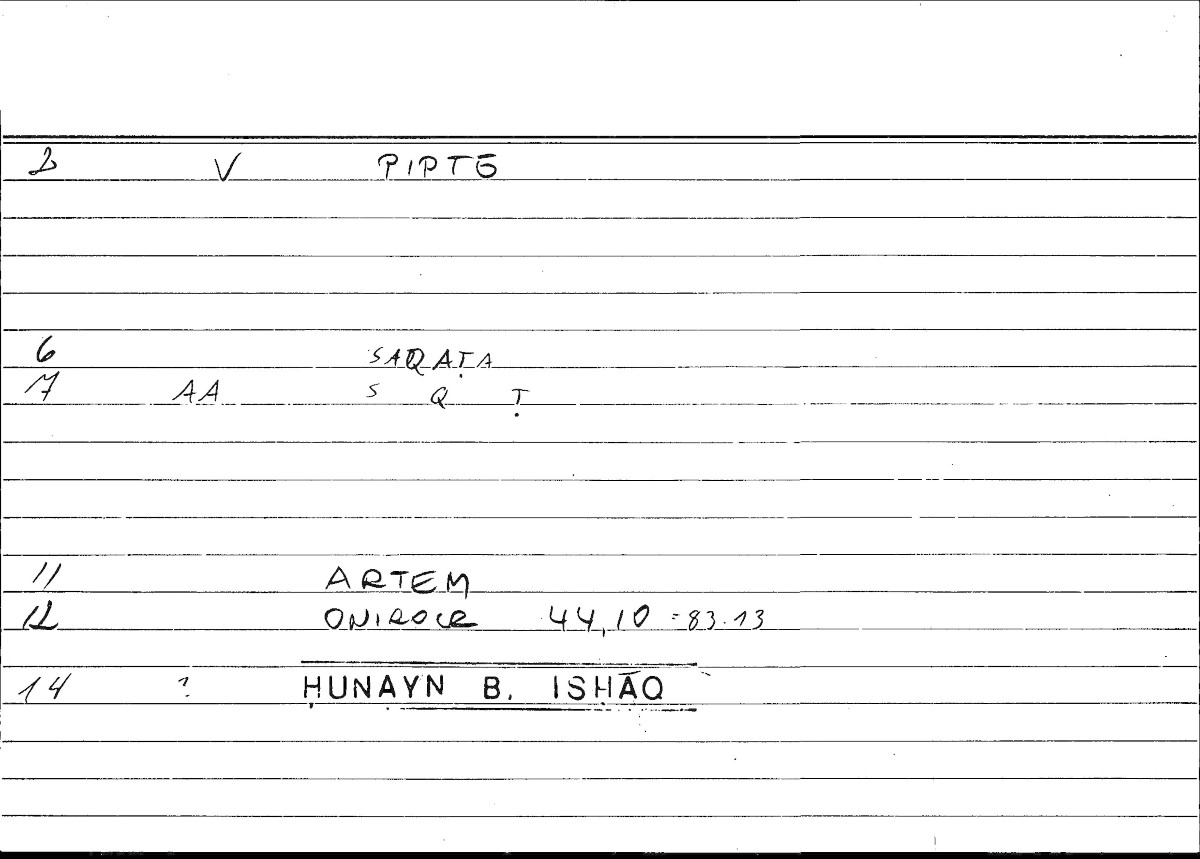 2 V PIPTE
6 SAQAṬA
7 AA S Q Ṭ
11 ARTEM
12 ONIROCR 44,10 = 83.13
14 ? ḤUNAYN B. ISḤĀQ